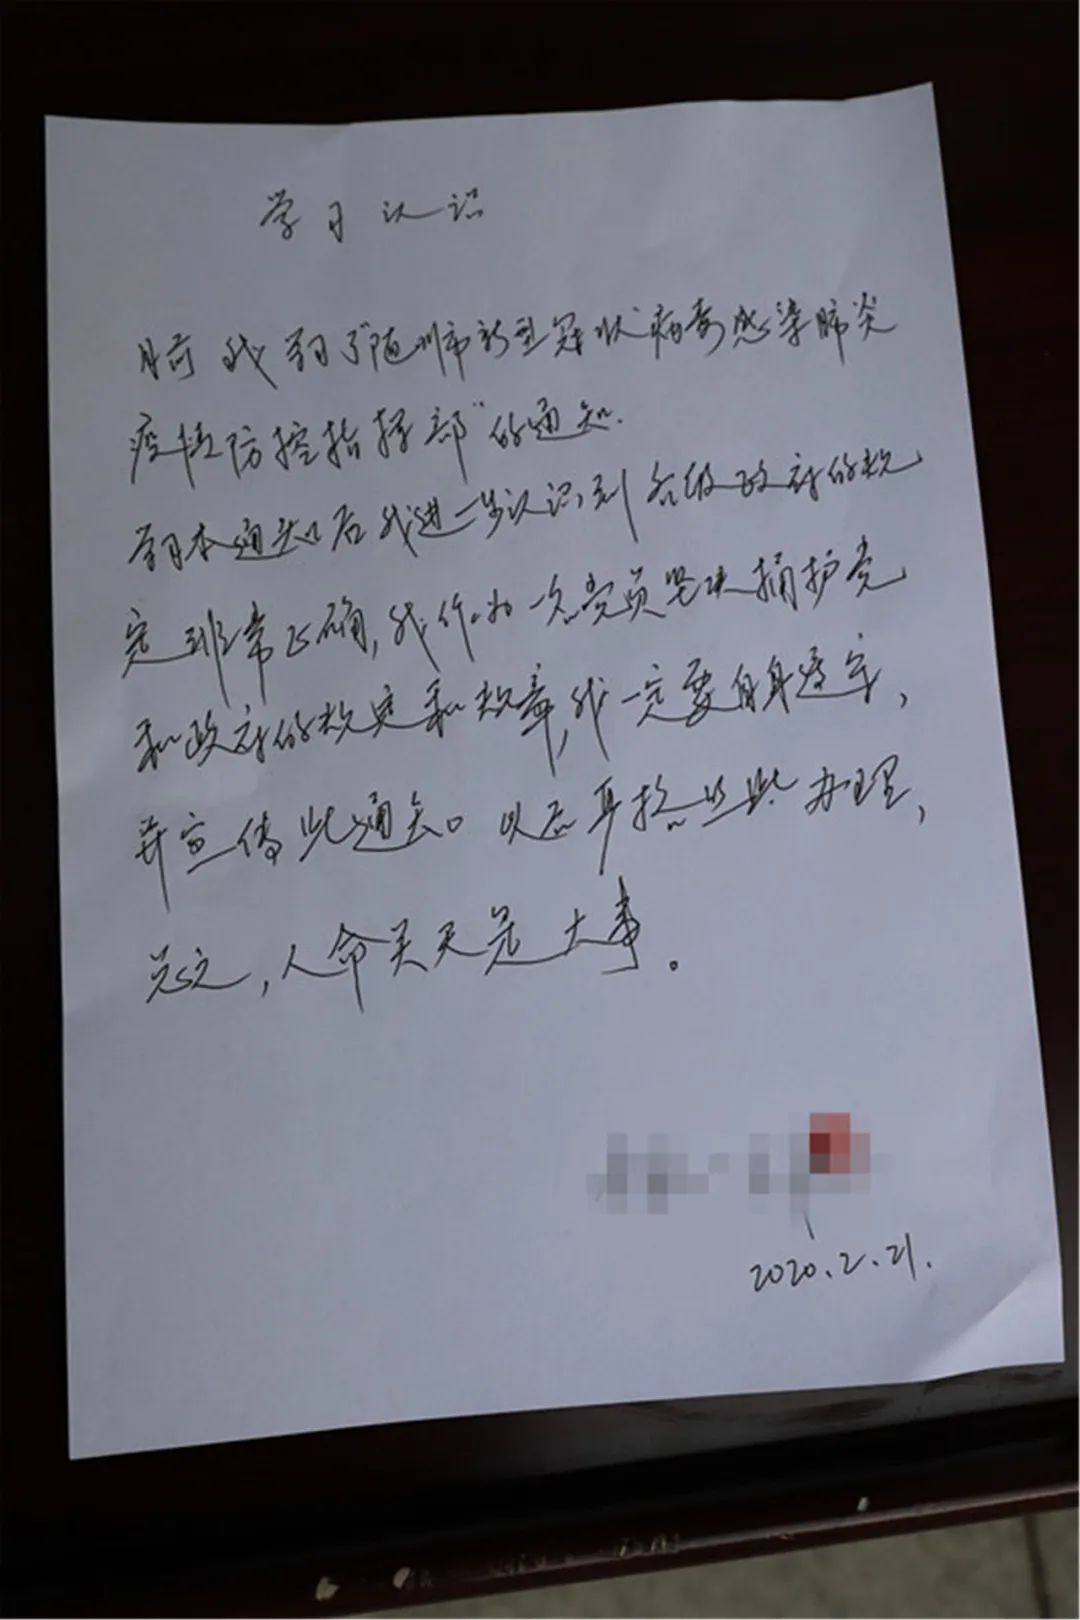 学习认识
目前我学习了"随州市新型冠状病毒感染肺炎
疫情防控指挥部"的通知.
学习本通知后我进一步认识到各级政府的规
定非常正确,我作为一名党员坚决拥护党
和政府的规定和规章,我一定要自身遵守,
并宣传此通知。以后再按照此办理,
总之,人命关天是大事。
2020.2.21.